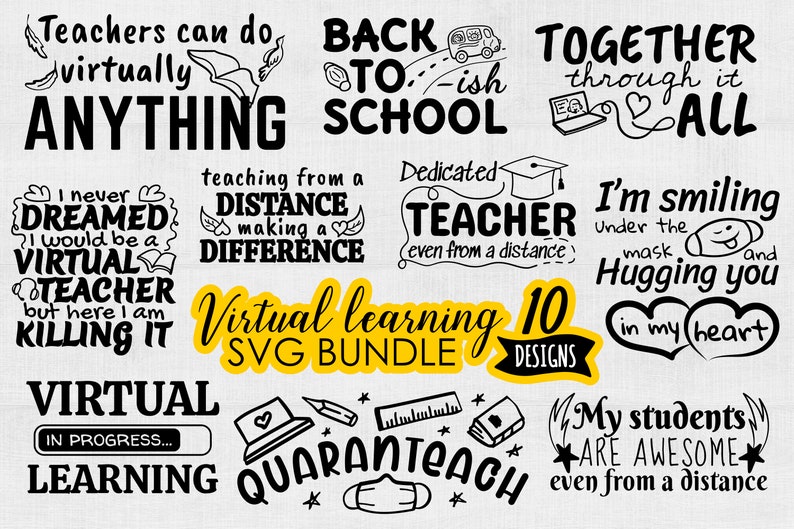 Teachers can do
virtually
ANYTHING
BACK
TO -ish
SCHOOL
TOGETHER
through it
ALL
I never
DREAMED
I would be a
VIRTUAL
TEACHER
but here I am
KILLING IT
teaching from a
DISTANCE
making a
DIFFERENCE
Dedicated
TEACHER
even from a distance
I'm smiling
under the
mask and
Hugging you
in my heart
Virtual learning
SVG BUNDLE
10
DESIGNS
VIRTUAL
IN PROGRESS...
LEARNING
QUARANTEACH
My students
ARE AWESOME
even from a distance